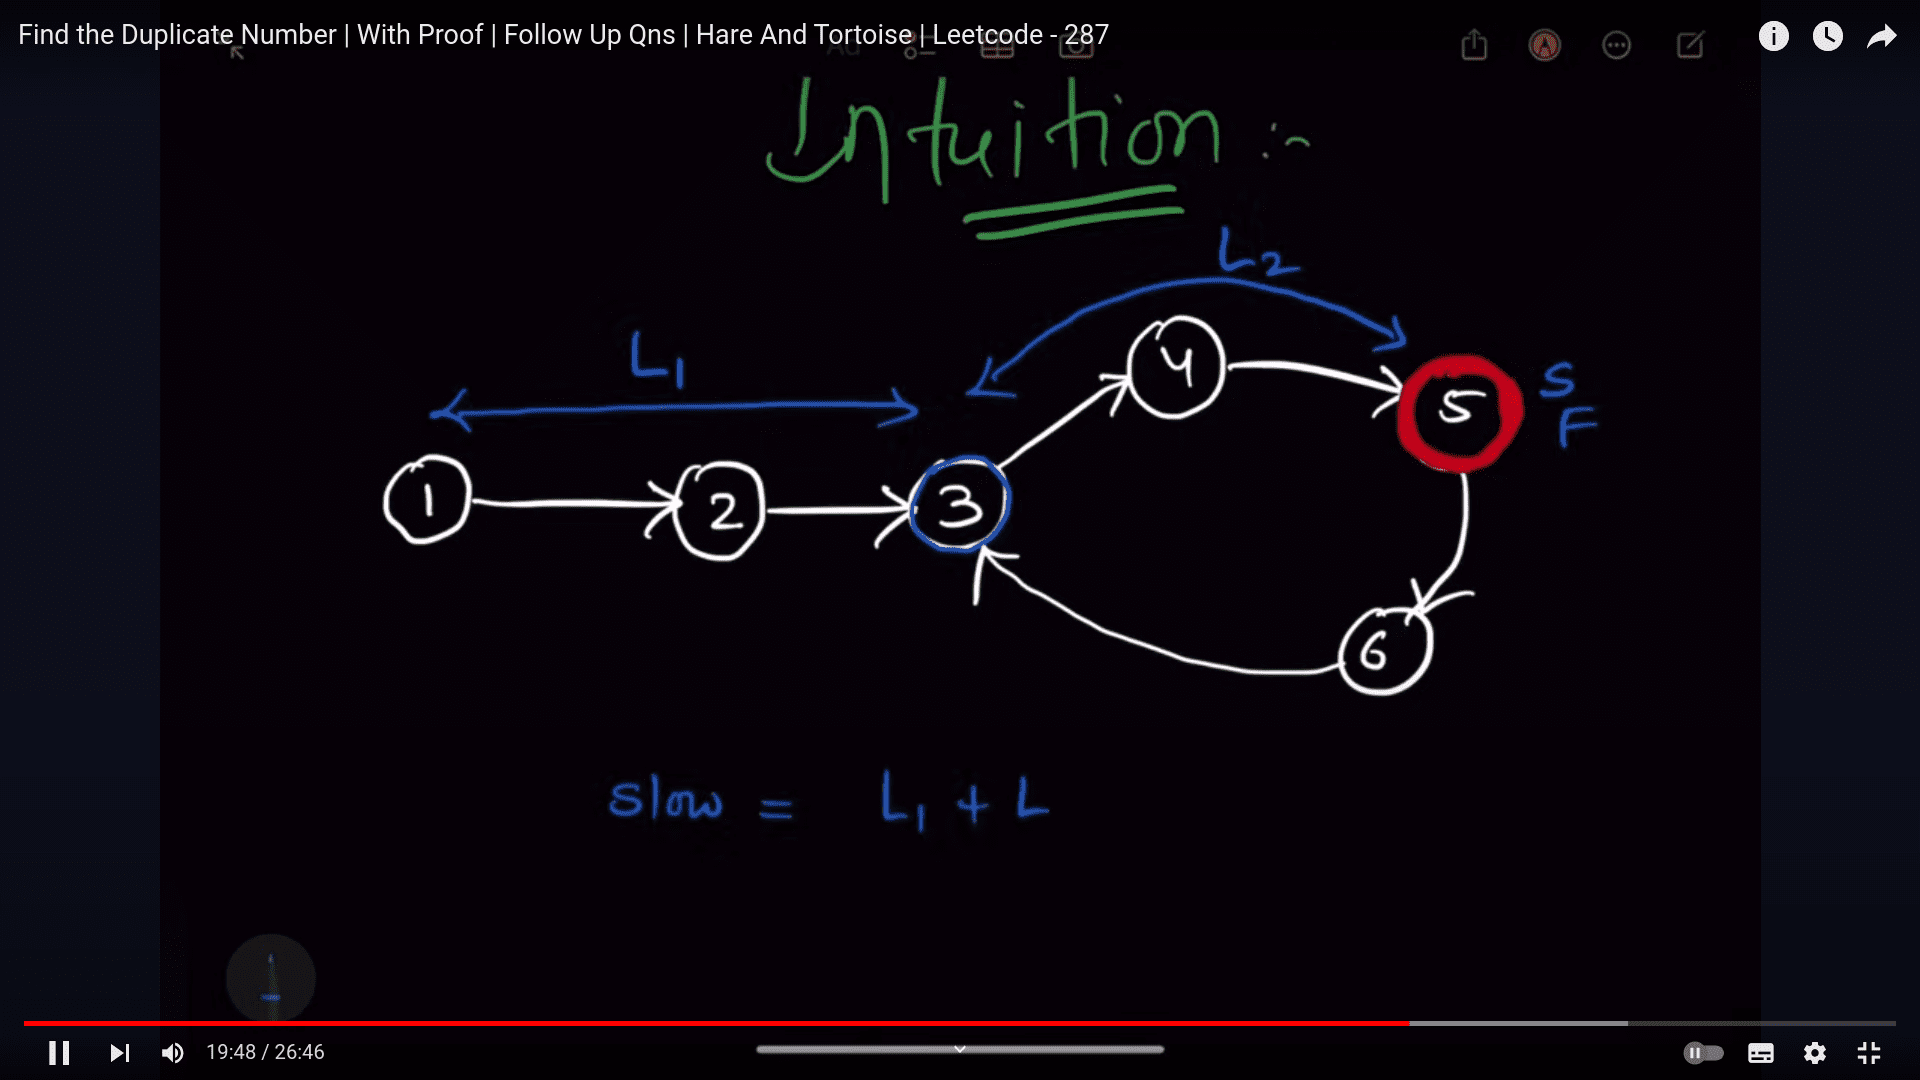 Find the Duplicate Number | With Proof | Follow Up Qns | Hare And Tortoise | Leetcode - 287
Intuition :-
L2
L1
4
5
S
F
1
2
3
6
Slow = L1 + L
19:48 / 26:46